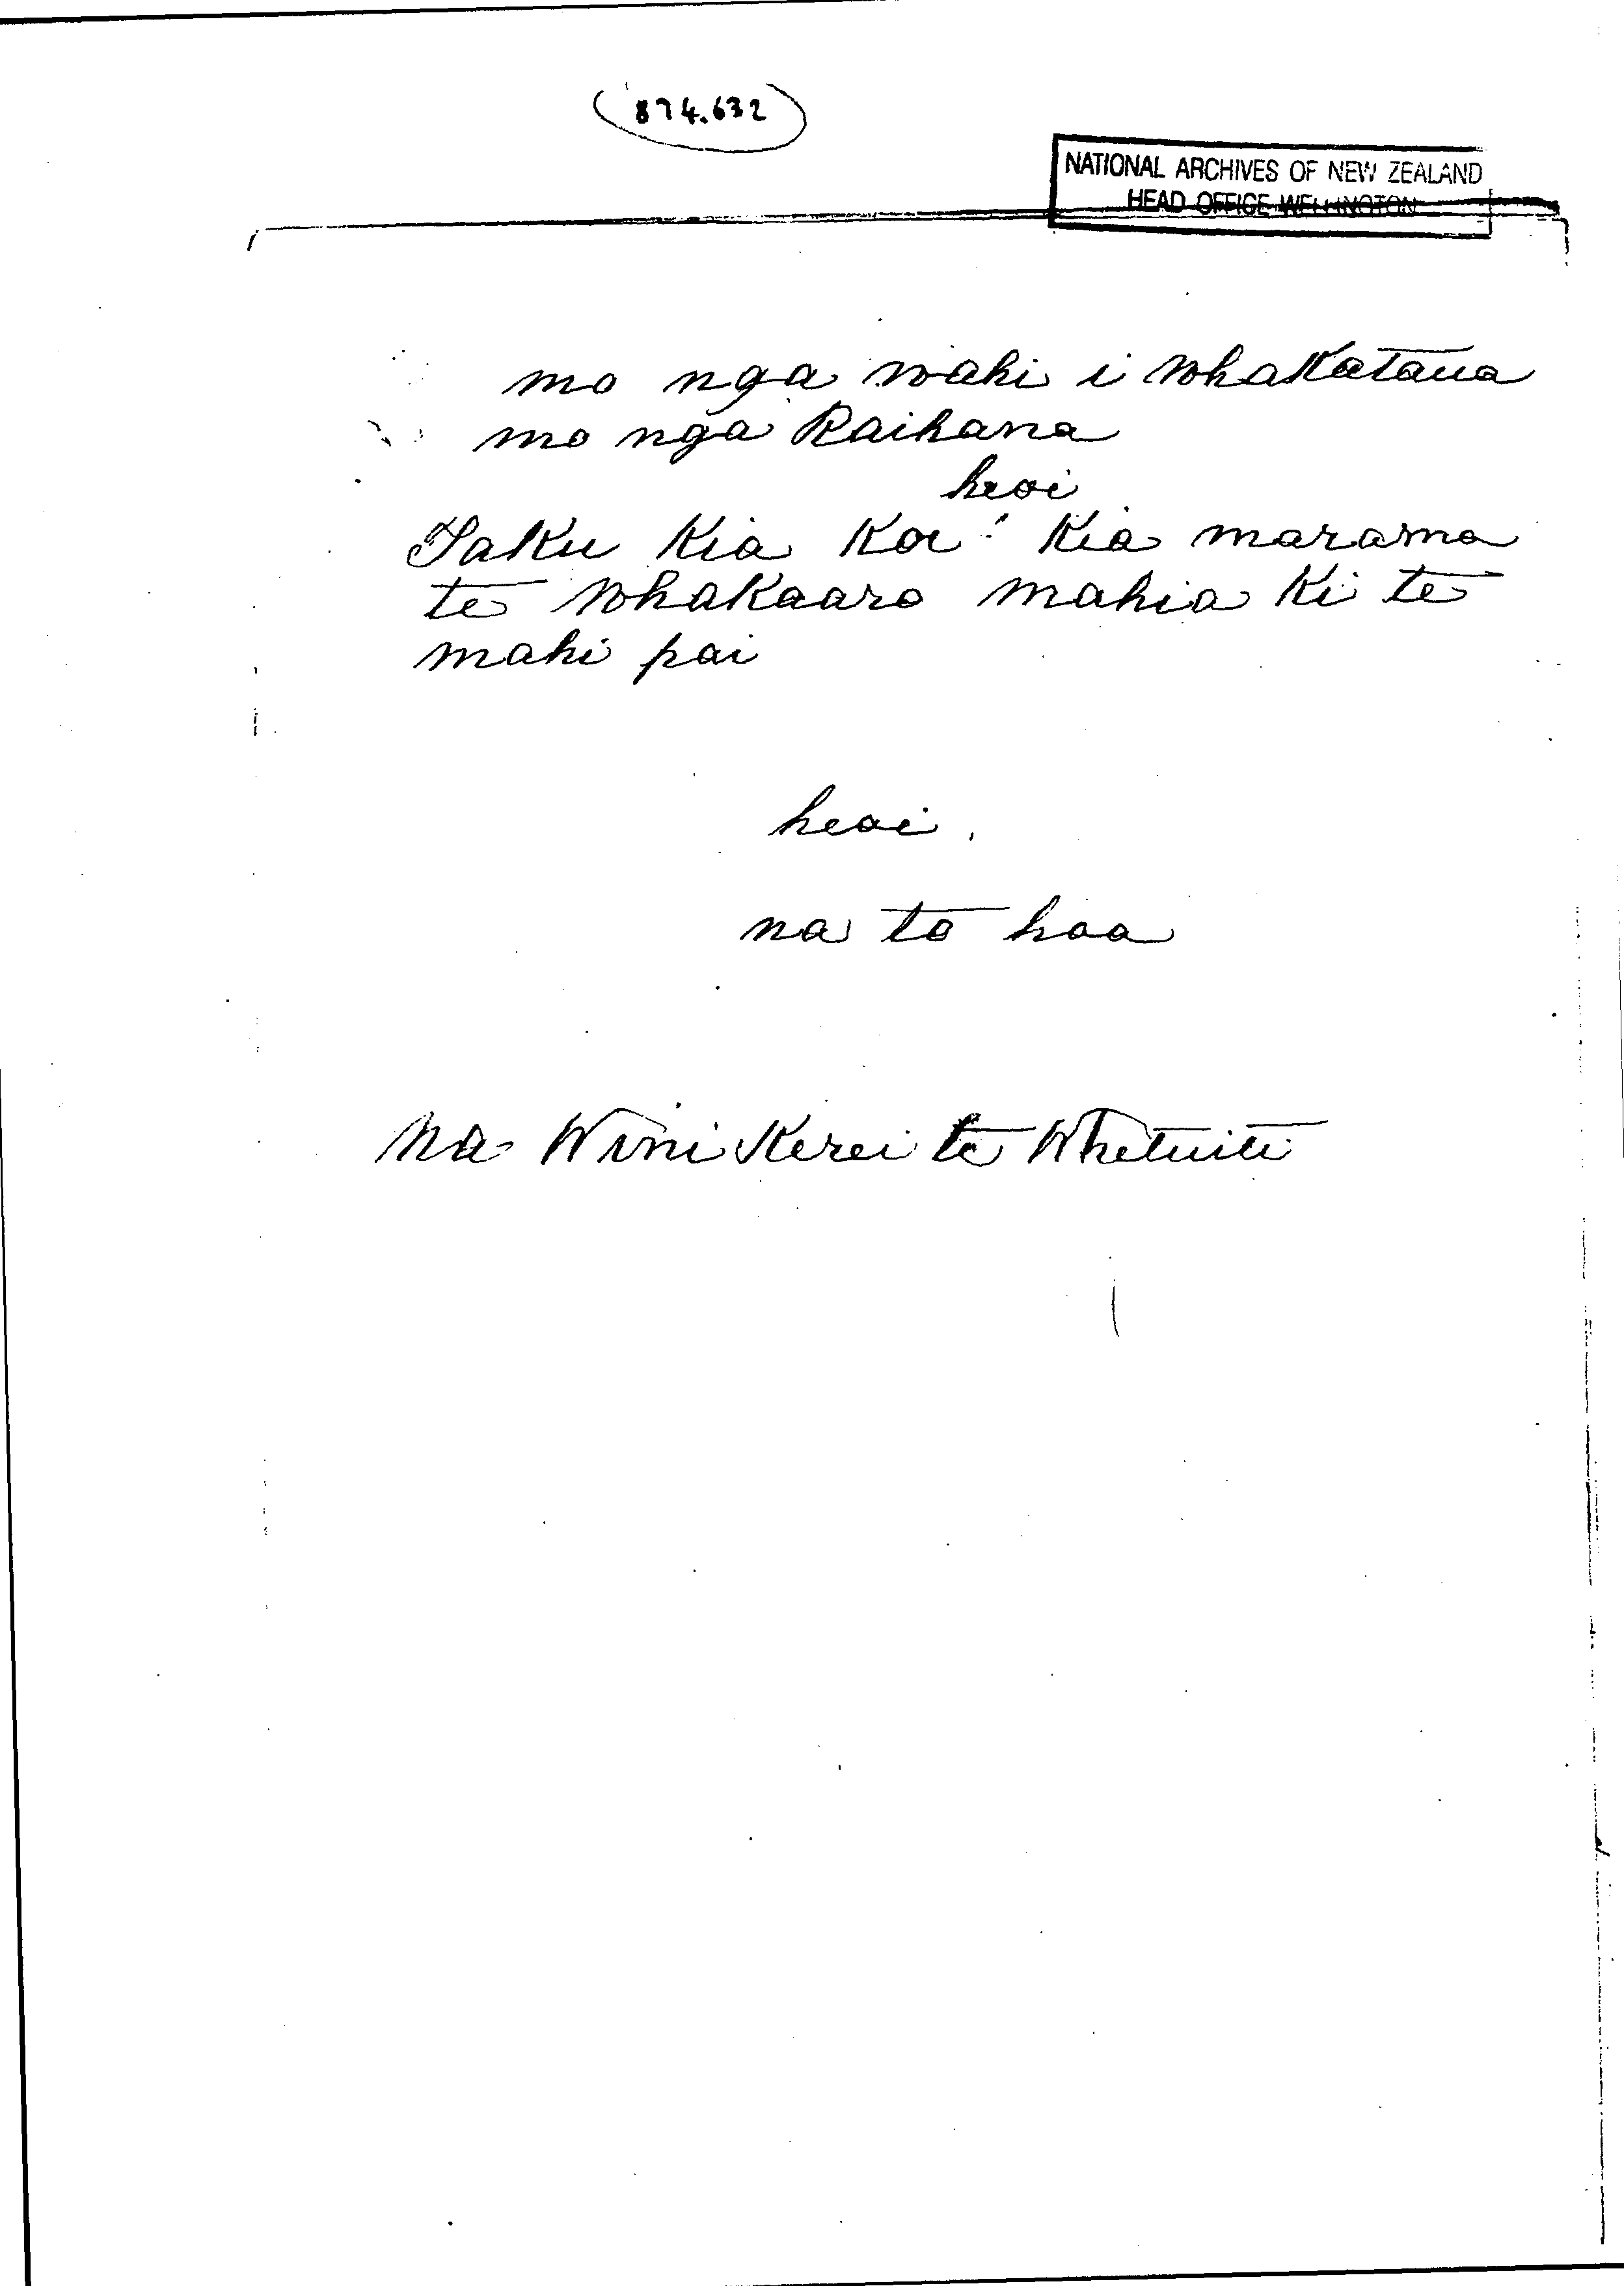 874.632
NATIONAL ARCHIVES OF NEW ZEALAND
HEAD OFFICE WELLINGTON
mo nga wahi i whakataua
mo nga Raihana
heoi
Taku kia koe: Kia marama
te whakaaro mahia ki te
mahi pai
heoi.
na to hoa
Na Wini Kerei te Whetuiti